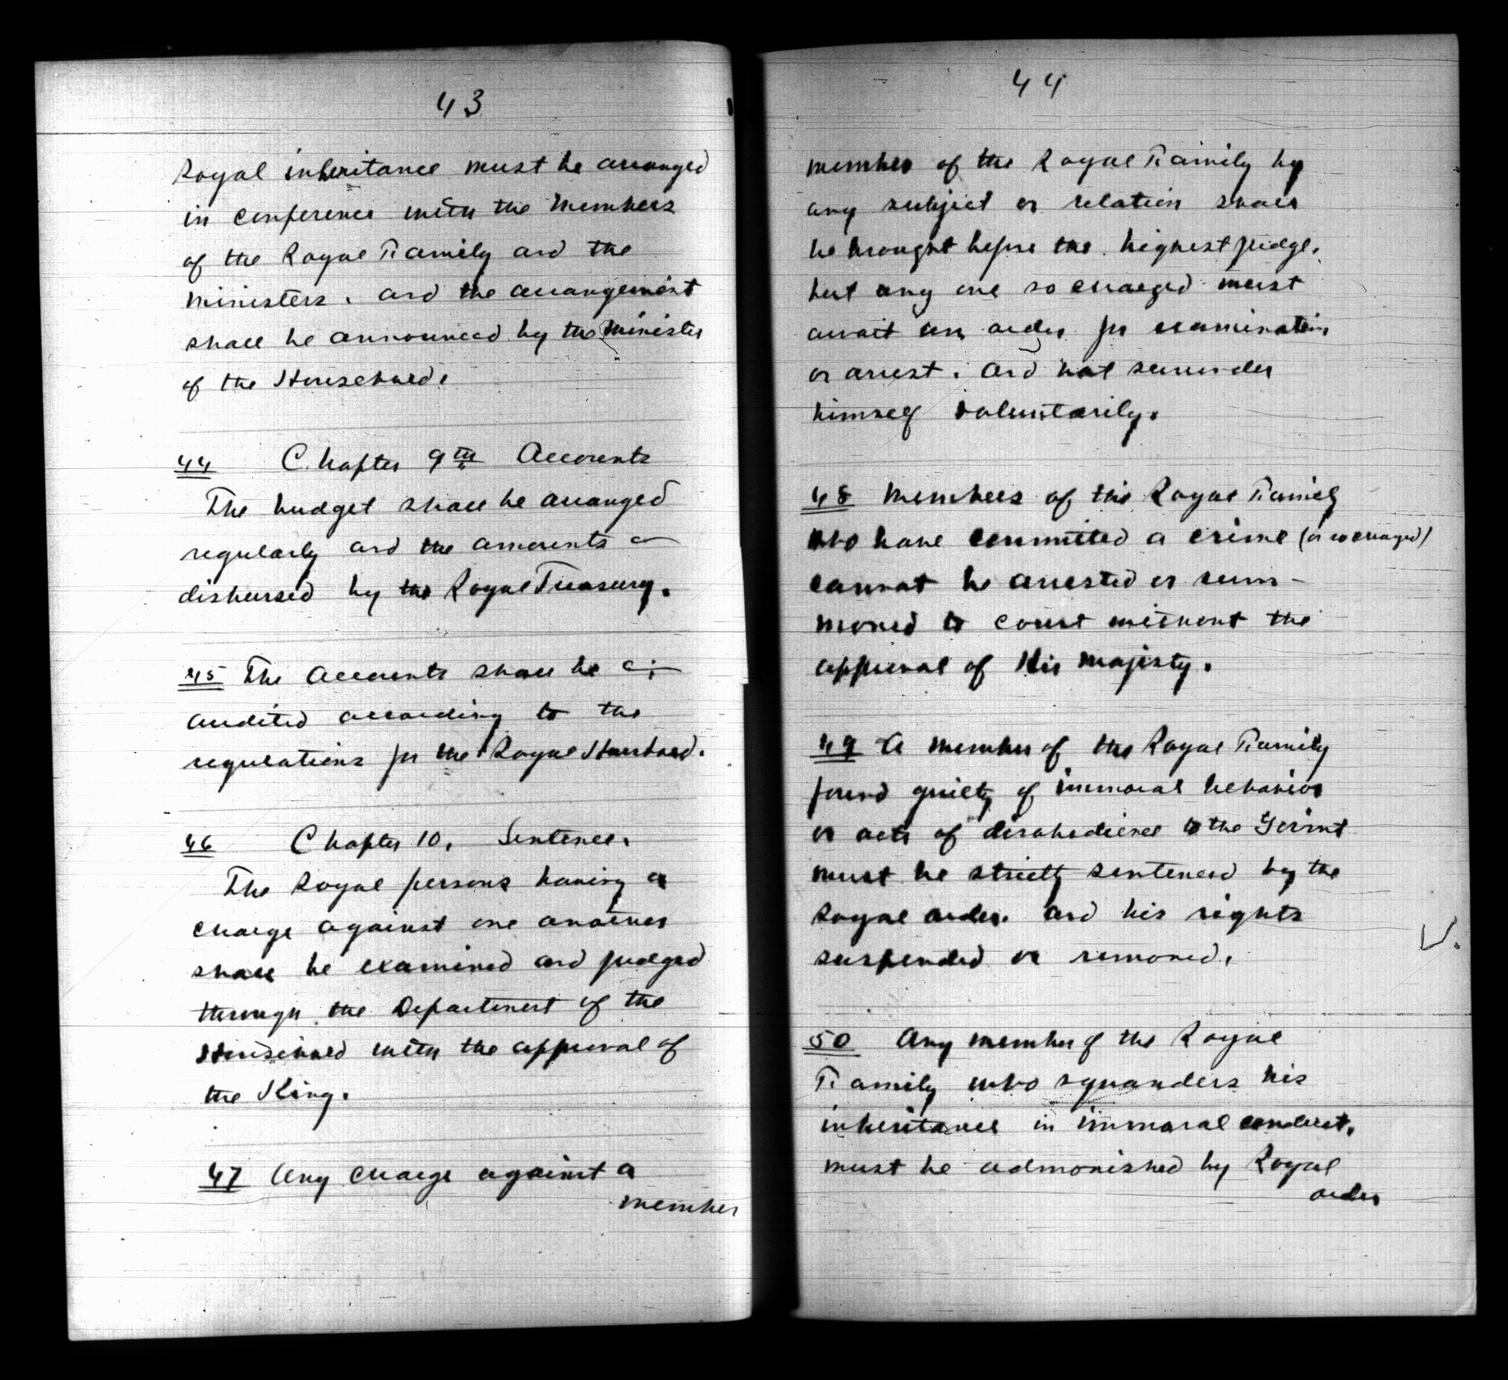 43
Royal inheritance must be arranged
in conference with the Members
of the Royal Family and the
Ministers. and the arrangement
shall be announced by the Minister
of the Household.
44 Chapter 9th Accounts
The budget shall be arranged
regularly and the amounts
disbursed by the Royal Treasury.
45 The Accounts shall be
audited according to the
regulations for the Royal Household.
46 Chapter 10. Sentence.
The Royal persons having a
charge against one another
shall be examined and judged
through the Department of the
Household with the approval of
the King.
47 Any charge against a
member
44
member of the Royal Family by
any subject or relation shall
be brought before the highest judge.
but any one so charged must
await an order for examination
or arrest. and not surrender
himself voluntarily.
48 Members of the Royal Family
who have committed a crime (or so charged)
cannot be arrested or sum-
moned to court without the
approval of His Majesty.
49 A member of the Royal Family
found guilty of immoral behavior
or acts of disobedience to the Govmt
must be strictly sentenced by the
Royal order. and his rights
suspended or removed.
V.
50 Any member of the Royal
Family who squanders his
inheritance in immoral conduct.
must be admonished by Royal
order